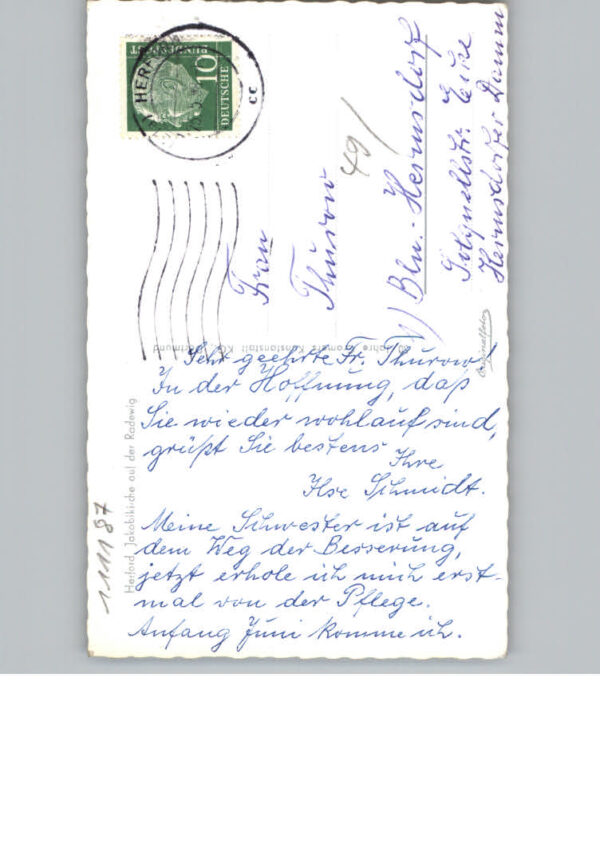 Sehr geehrte Fr. Thurow!
In der Hoffnung, daß
Sie wieder wohlauf sind,
grüßt Sie bestens
Ihre
Ilse Schmidt.
Meine Schwester ist auf
dem Weg der Besserung,
jetzt erhole ich mich erst-
mal von der Pflege.
Anfang Juni komme ich.
Frau
Thurow
1) Bln.-Hermsdorf
Solquellstr. Ecke
Hermsdorfer Damm
49/
DEUTSCHE
BUNDESPOST
10
HERF
cc
Herford, Jakobikirche auf der Radewig
Jahre Cramers Kunstanstalt KG, Dortmund
Originalfoto
111187